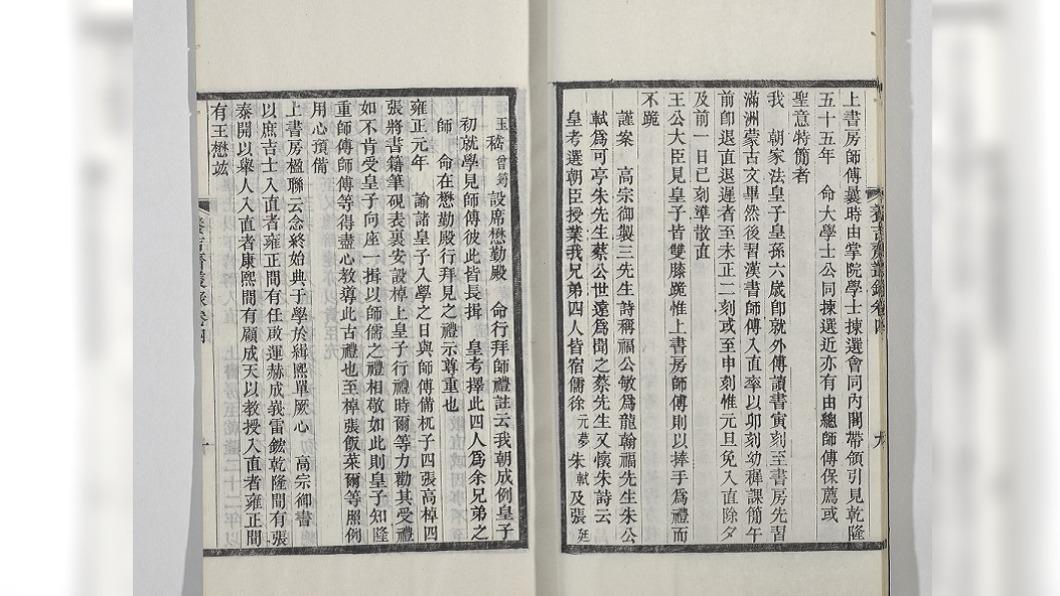 上書房師傅曩時由掌院學士揀選會同內閣帶領引見乾隆
五十五年 命大學士公同揀選近亦有由總師傅保薦或
聖意特簡者
我 朝家法皇子皇孫六歲卽就外傅讀書寅刻至書房先習
滿洲蒙古文畢然後習漢書師傅入直率以卯刻幼穉課簡午
前卽退直退遲者至未正二刻或至申刻惟元旦免入直除夕
及前一日巳刻準散直
王公大臣見皇子皆雙膝跪惟上書房師傅則以捧手爲禮而
不跪
謹案 高宗御製三先生詩稱福公敏爲龍翰福先生朱公
軾爲可亭朱先生蔡公世遠爲聞之蔡先生又懷朱詩云
皇考選朝臣授業我兄弟四人皆宿儒徐元夢朱軾及張廷
養吉齋叢錄卷四
九
玉嵇曾筠設席懋勤殿 命行拜師禮註云我朝成例皇子
初就學見師傅彼此皆長揖 皇考擇此四人爲余兄弟之
師 命在懋勤殿行拜見之禮示尊重也
雍正元年 諭諸皇子入學之日與師傅備杌子四張高棹四
張將書籍筆硯表裏安設棹上皇子行禮時爾等力勸其受禮
如不肯受皇子向座一揖以師儒之禮相敬如此則皇子知隆
重師傅師傅等得盡心教導此古禮也至棹張飯菜爾等照例
用心預備
上書房楹聯云念終始典于學於緝熙單厥心 高宗御書
以庶吉士入直者雍正間有任啟運赫成義雷鋐乾隆間有張
泰開以舉人入直者康熙間有顧成天以教授入直者雍正間
有王懋竑
養吉齋叢錄卷四
十